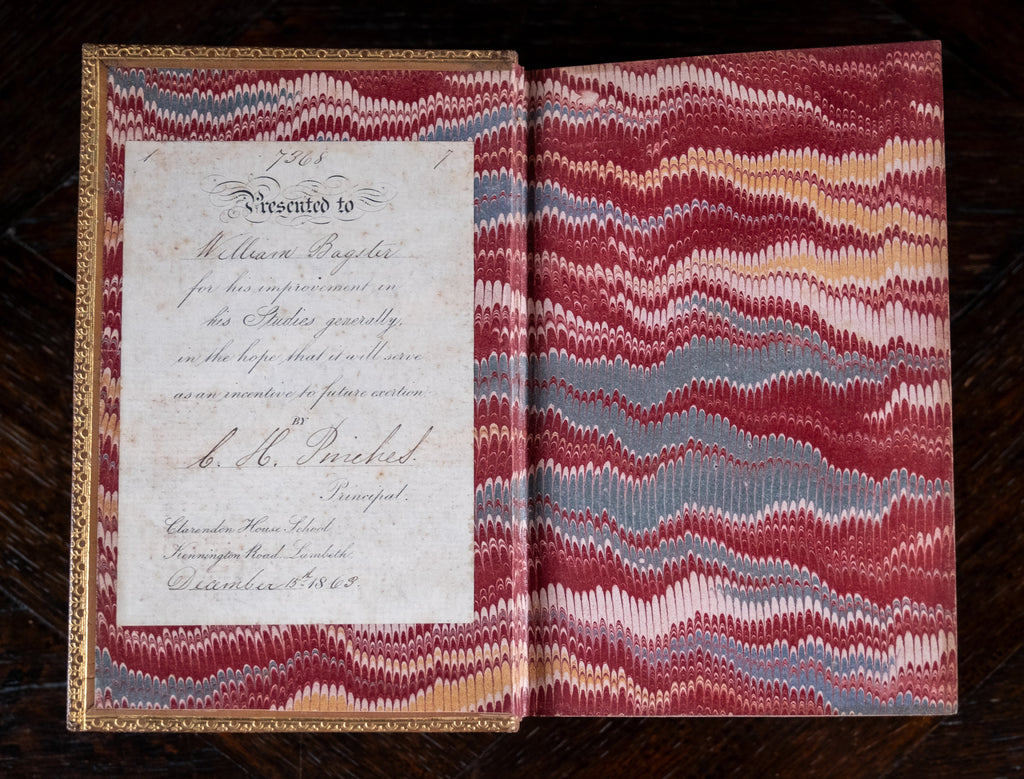 1 7368 7
Presented to
William Bagster
for his improvement in
his Studies generally,
in the hope that it will serve
as an incentive to future exertion
BY
C. H. Pinches.
Principal.
Clarendon House School
Kennington Road. Lambeth.
December 15th 1863.